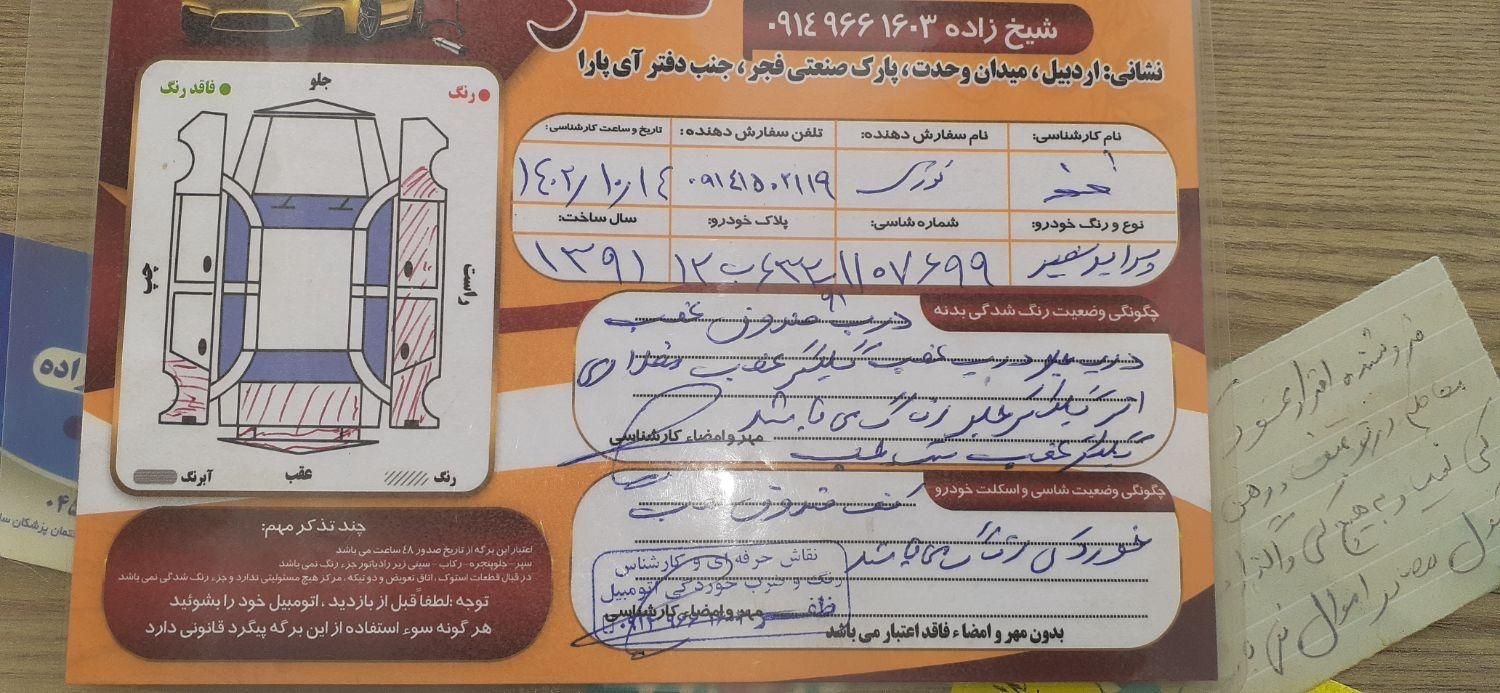 شیخ زاده ۰۹۱۴ ۹۶۶ ۱۶۰۳
نشانی: اردبیل، میدان وحدت، پارک صنعتی فجر، جنب دفتر آی پارا
رنگ
جلو
فاقد رنگ
راست
چپ
رنگ
عقب
آبرنگ
نام کارشناسی:
نام سفارش دهنده:
تلفن سفارش دهنده:
تاریخ و ساعت کارشناسی:
نوری
۰۹۱۴۱۵۰۲۱۱۹
۱۴۰۲/۱۰/۱۴
نوع و رنگ خودرو:
شماره شاسی:
پلاک خودرو:
سال ساخت:
پراید سفید
۱۱۰۷۶۹۹
۶۳۳ ب ۱۲
۹۱
۱۳۹۱
چگونگی وضعیت رنگ شدگی بدنه
درب صندوق عقب
درب جلو درب عقب گیلگیر عقب مقداری
از گیلگیر جلو رنگ می باشد
مهر و امضاء کارشناسی
گیلگیر عقب
چگونگی وضعیت شاسی و اسکلت خودرو
کف صندوق عقب
خوردگی رنگ می باشد
نقاش حرفه ای و کارشناس
رنگ و ضرب خوردگی اتومبیل
مهر و امضاء کارشناسی
بدون مهر و امضاء فاقد اعتبار می باشد
چند تذکر مهم:
اعتبار این برگه از تاریخ صدور ۴۸ ساعت می باشد
سپر-جلوپنجره-رکاب-سینی زیر رادیاتور جزء رنگ نمی باشد
در قبال قطعات استوک، اتاق تعویض و دو تیکه، مرکز هیچ مسئولیتی ندارد و جزء رنگ شدگی نمی باشد
توجه: لطفاً قبل از بازدید، اتومبیل خود را بشوئید
هر گونه سوء استفاده از این برگه پیگرد قانونی دارد
زاده
۰۴۵
ختمان پزشکان سا
فروشنده اقرار نمود